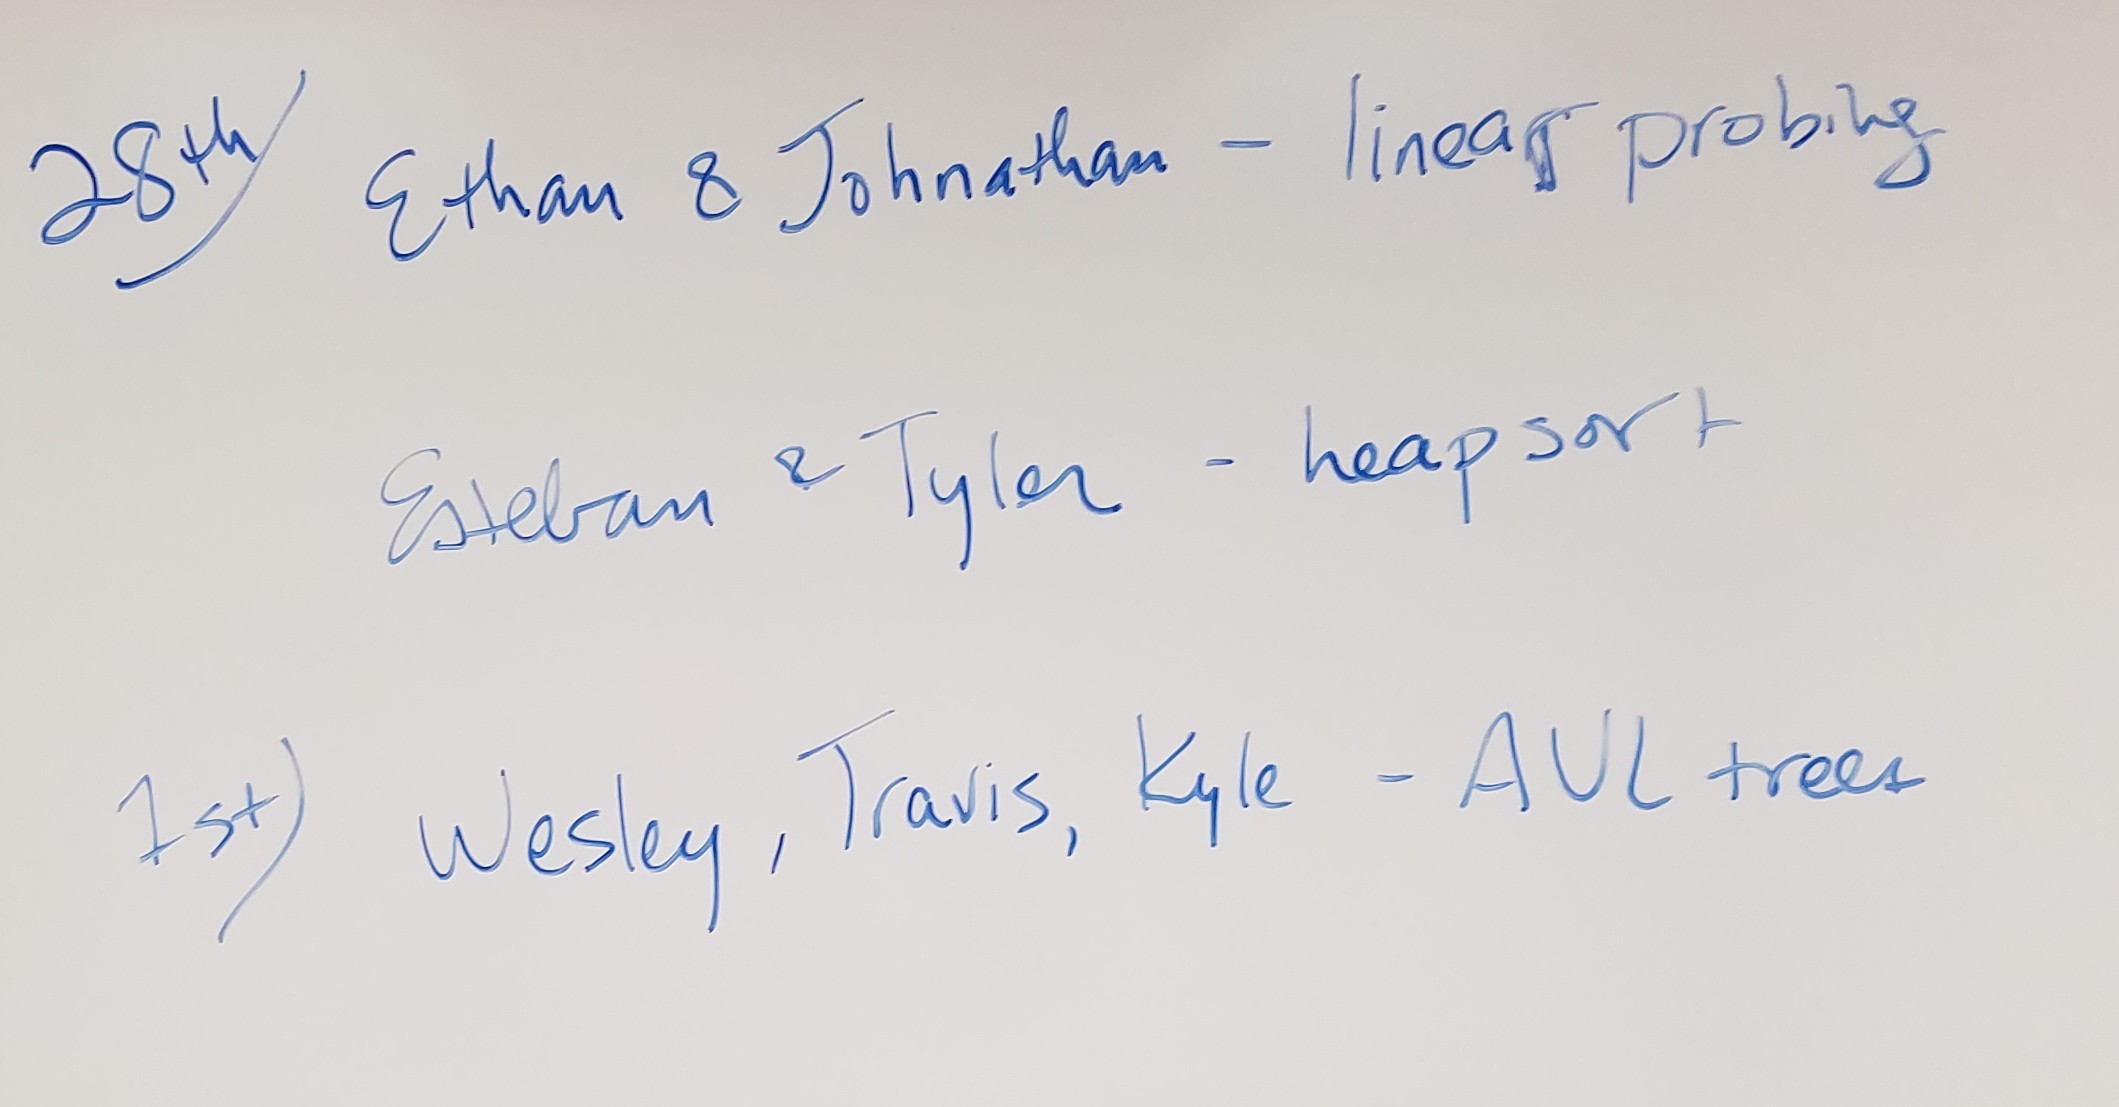 28th) Ethan & Johnathan - linear probing
Esteban & Tyler - heapsort
1st) Wesley, Travis, Kyle - AVL trees